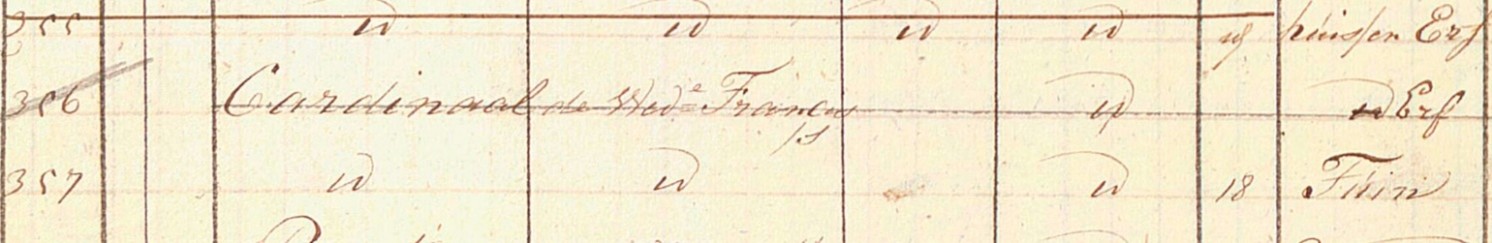 355 id id id id huis en Erf
356 Cardinaal de Wede Francis id id Erf
357 id id id 18 Tuin